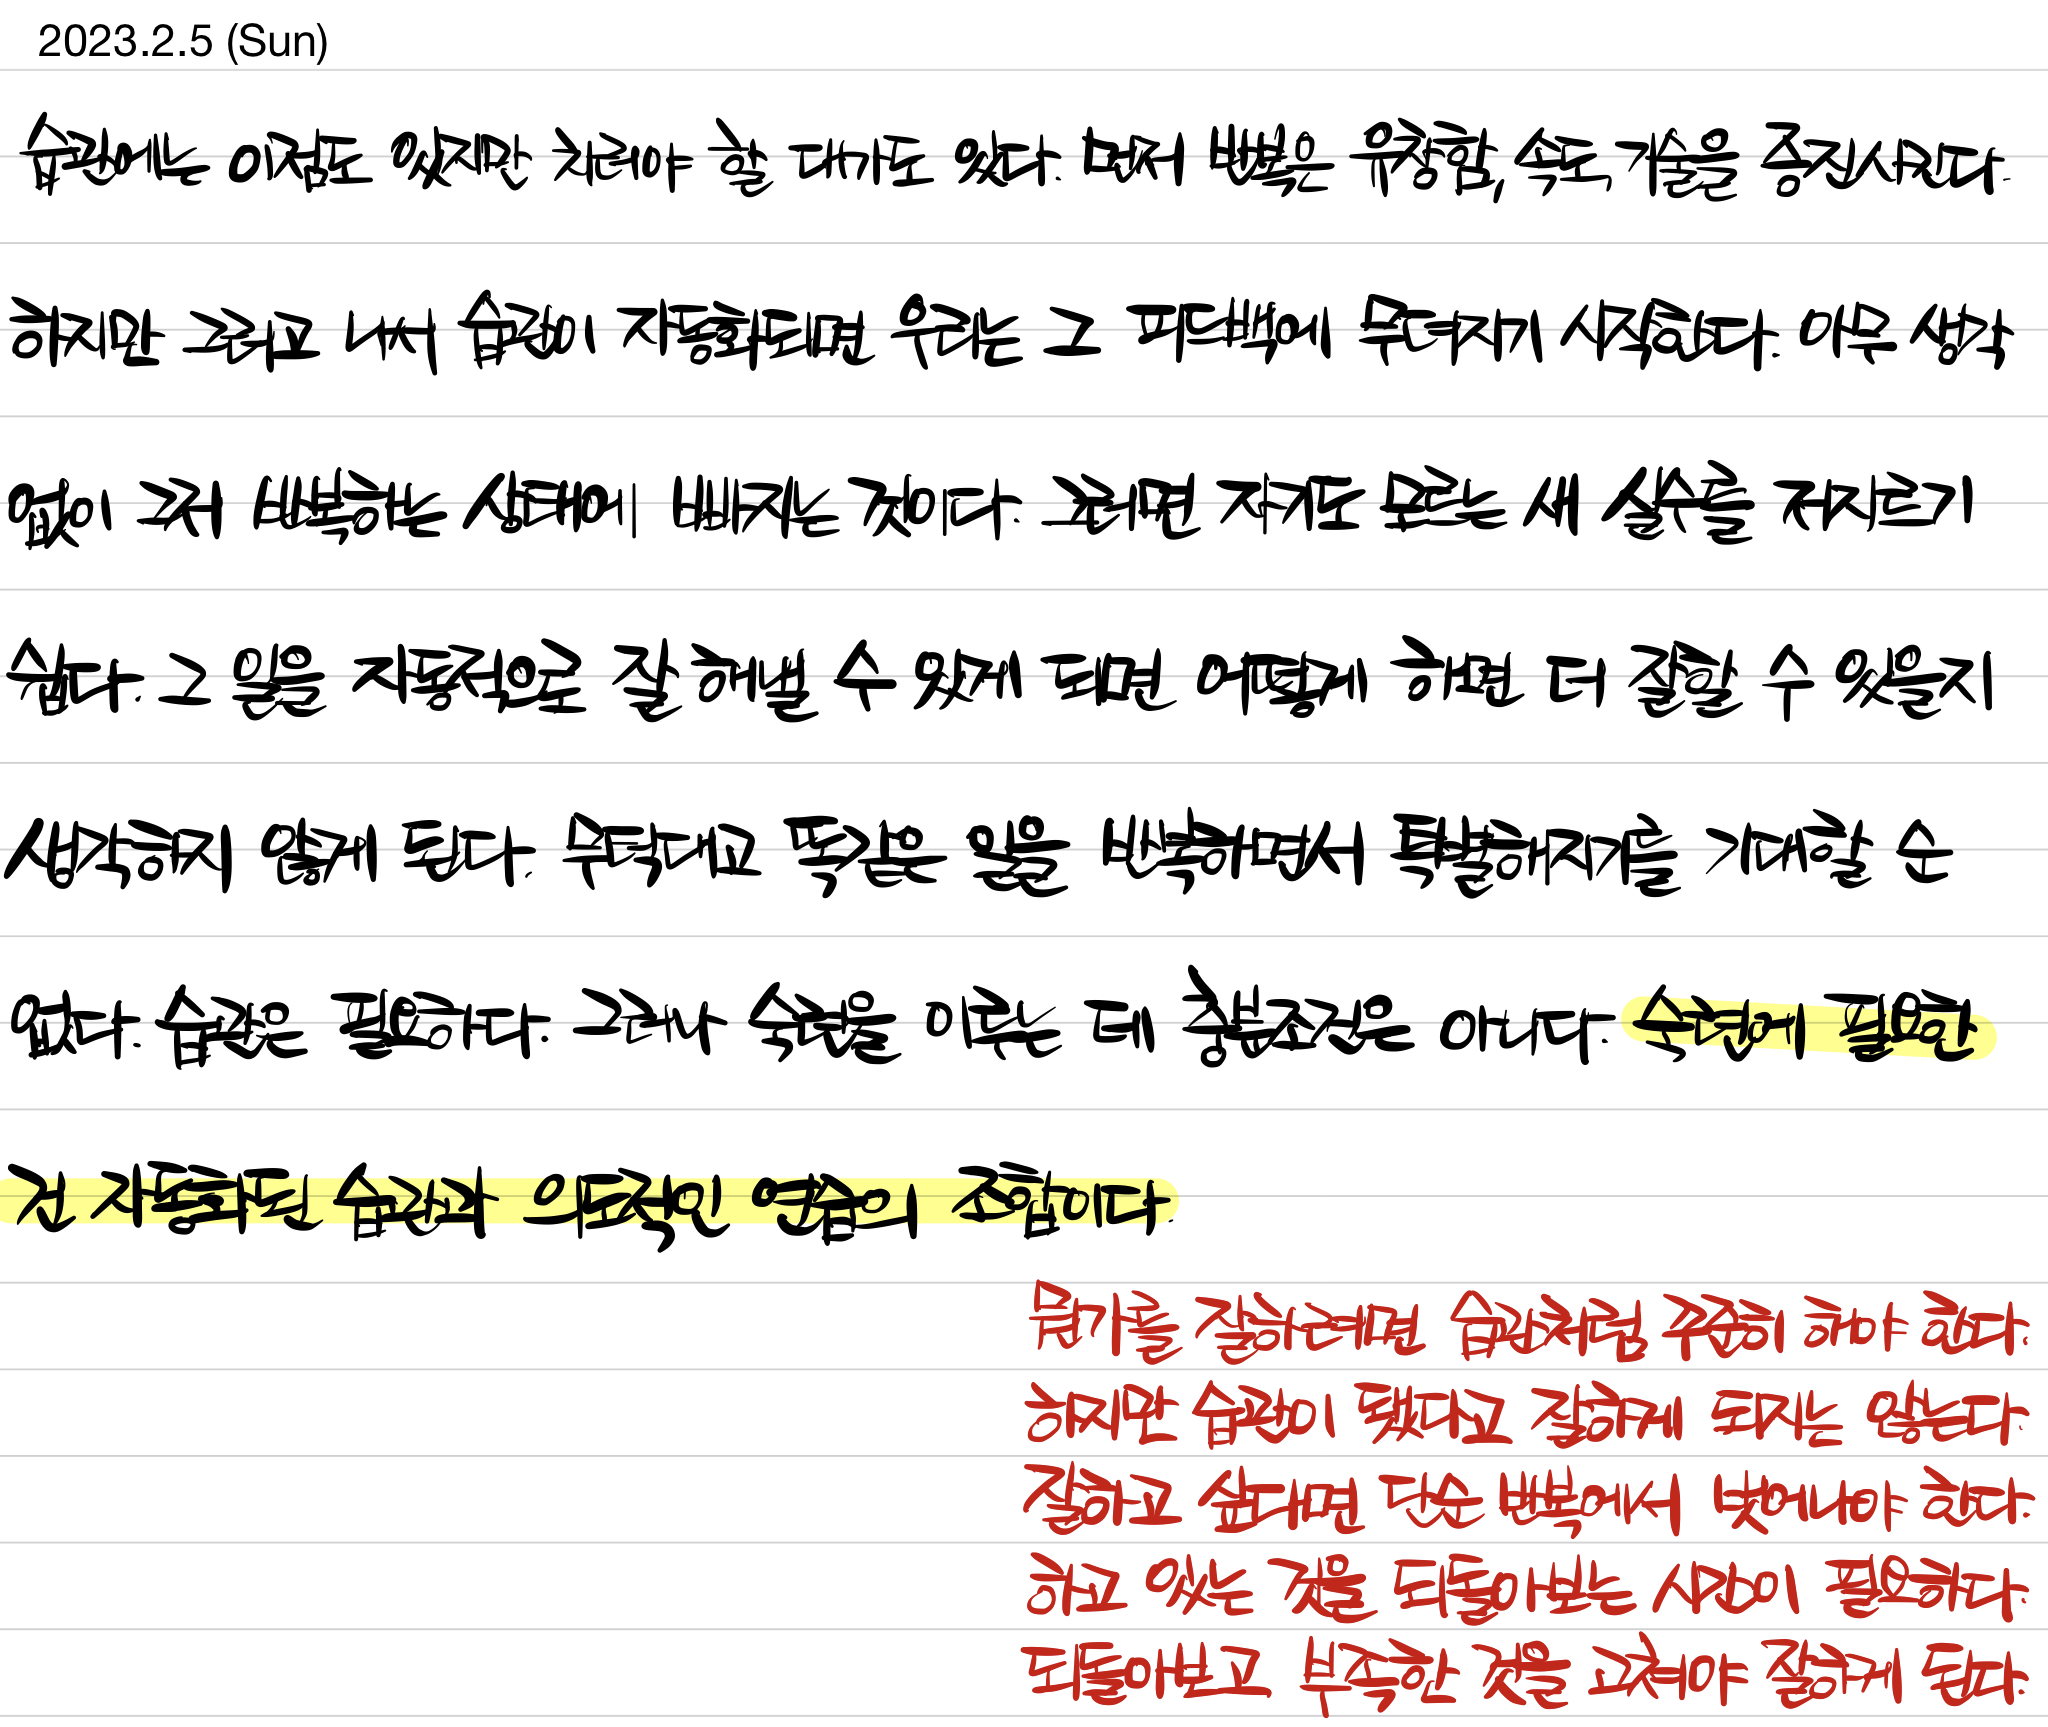 2023.2.5 (Sun)
습관에는 이점도 있지만 치러야 할 대가도 있다. 먼저 반복은 유창함, 속도, 기술을 증진시킨다.
하지만 그러고 나서 습관이 자동화되면 우리는 그 피드백에 무뎌지기 시작한다. 아무 생각
없이 그저 반복하는 상태에 빠지는 것이다. 그러면 자기도 모르는 새 실수를 저지르기
쉽다. 그 일을 자동적으로 잘 해낼 수 있게 되면 어떻게 하면 더 잘할 수 있을지
생각하지 않게 된다. 무턱대고 똑같은 일을 반복하면서 특별해지기를 기대할 순
없다. 습관은 필요하다. 그러나 숙련을 이루는 데 충분조건은 아니다. 숙련에 필요한
건 자동화된 습관과 의도적인 연습의 조합이다.
뭔가를 잘하려면 습관처럼 꾸준히 해야 한다.
하지만 습관이 됐다고 잘하게 되지는 않는다.
잘하고 싶다면 단순 반복에서 벗어나야 한다.
하고 있는 것을 되돌아보는 시간이 필요하다.
되돌아보고 부족한 것을 고쳐야 잘하게 된다.